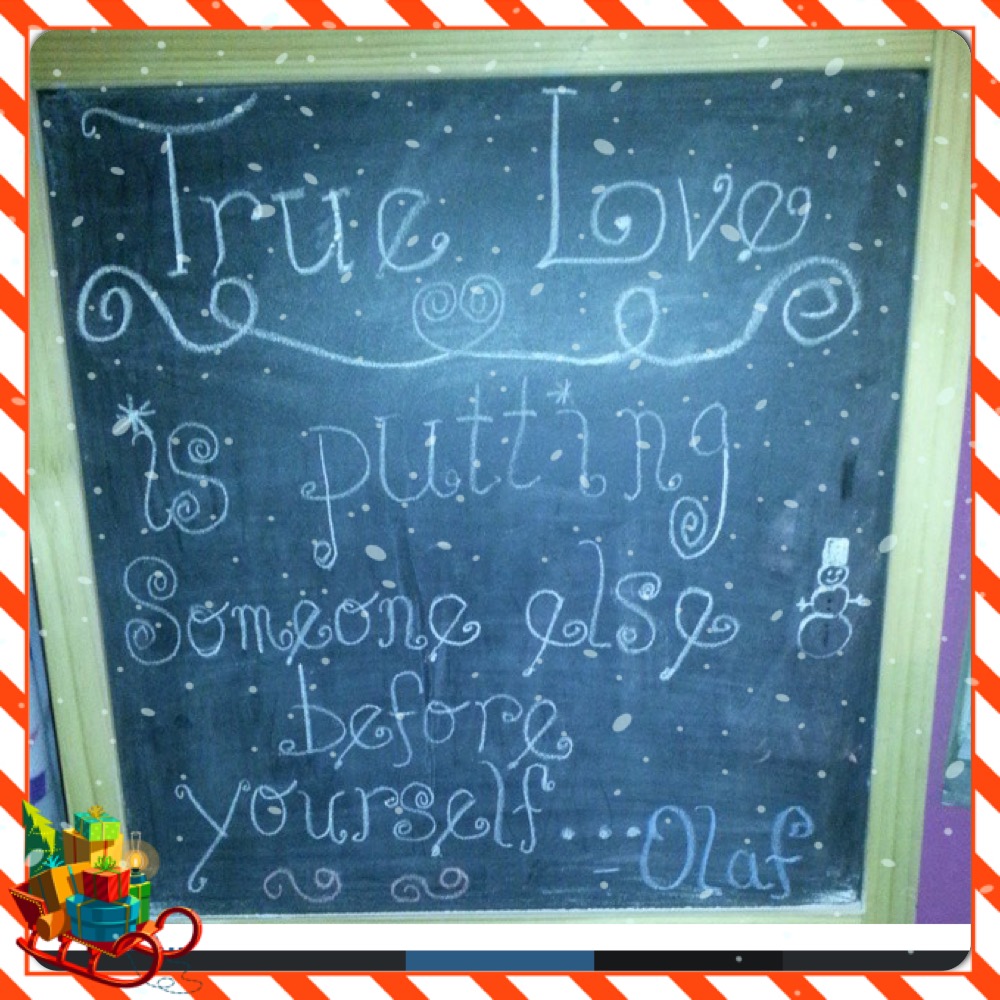 True Love
is putting
Someone else
before
yourself....
-Olaf